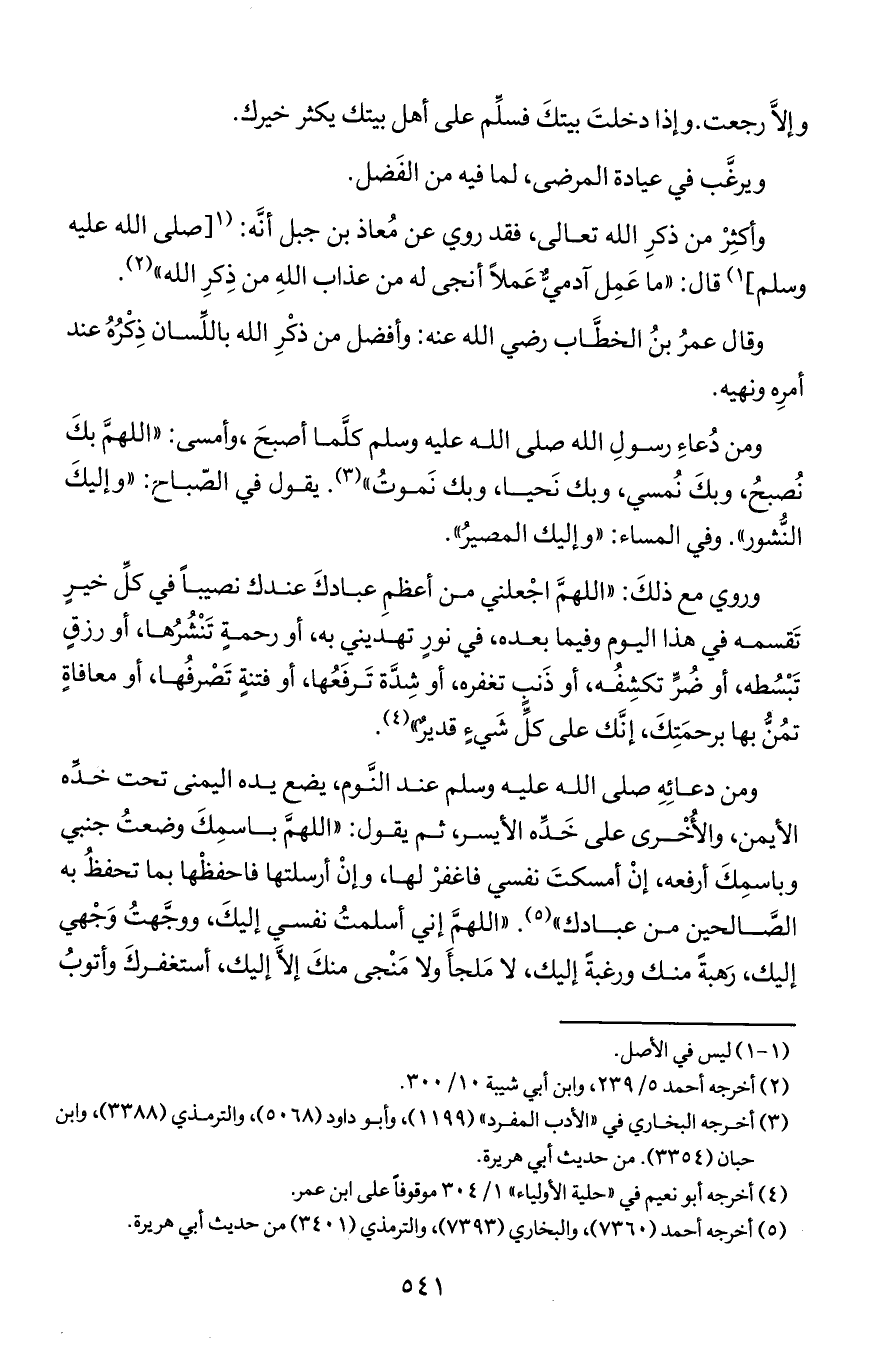 وإلاَّ رجعت.وإذا دخلتَ بيتكَ فسلِّم على أهل بيتك يكثر خيرك.
ويرغَّب في عيادة المرضى، لما فيه من الفَضل.
وأكثِرْ من ذكرِ الله تعالى، فقد روي عن مُعاذ بن جبل أنَّه: (١[صلى الله عليه
وسلم]١) قال: «ما عَمِل آدميٌّ عَملاً أنجى له من عذاب اللهِ من ذِكرِ الله»(٢).
وقال عمرُ بنُ الخطَّاب رضي الله عنه: وأفضل من ذكْرِ الله باللِّسان ذِكْرُهُ عند
أمرِه ونهيه.
ومن دُعاءِ رسولِ الله صلى الله عليه وسلم كلَّما أصبحَ ،وأمسى: «اللهمَّ بكَ
نُصبحُ، وبكَ نُمسي، وبك نَحيا، وبك نَموتُ»(٣). يقول في الصّباح: «وإليكَ
النُّشور». وفي المساء: «وإليك المصيرُ».
وروي مع ذلكَ: «اللهمَّ اجْعلني من أعظمِ عبادكَ عندك نصيباً في كلِّ خيرٍ
تَقسمه في هذا اليوم وفيما بعده، في نورٍ تهديني به، أو رحمةٍ تَنْشُرُها، أو رزقٍ
تَبْسُطه، أو ضُرٍّ تكشِفُه، أو ذَنبٍ تغفره، أو شِدَّة تَرفَعُها، أو فتنةٍ تَصْرفُها، أو معافاةٍ
تمُنُّ بها برحمَتِكَ، إنَّك على كلِّ شَيءٍ قديرٌ»(٤).
ومن دعائِهِ صلى الله عليه وسلم عند النَّوم، يضع يده اليمنى تحت خدِّه
الأيمن، والأُخْرى على خَدِّه الأيسر، ثم يقول: «اللهمَّ باسمِكَ وضعتُ جنبي
وباسمِكَ أرفعه، إنْ أمسكتَ نفسي فاغفرْ لها، وإنْ أرسلتها فاحفظْها بما تحفظُ به
الصَّالحين من عبادك»(٥). «اللهمَّ إني أسلمتُ نفسي إليكَ، ووجَّهتُ وَجْهي
إليك، رَهبةً منك ورغبةً إليك، لا مَلجأَ ولا مَنْجى منكَ إلاَّ إليك، أستغفركَ وأتوبُ
(١-١) ليس في الأصل.
(٢) أخرجه أحمد ٥/ ٢٣٩، وابن أبي شيبة ١٠/ ٣٠٠.
(٣) أخرجه البخاري في «الأدب المفرد» (١١٩٩)، وأبو داود (٥٠٦٨)، والترمذي (٣٣٨٨)، وابن
حبان (٣٣٥٤). من حديث أبي هريرة.
(٤) أخرجه أبو نعيم في «حلية الأولياء» ١/ ٣٠٤ موقوفاً على ابن عمر.
(٥) أخرجه أحمد (٧٣٦٠)، والبخاري (٧٣٩٣)، والترمذي (٣٤٠١) من حديث أبي هريرة.
٥٤١